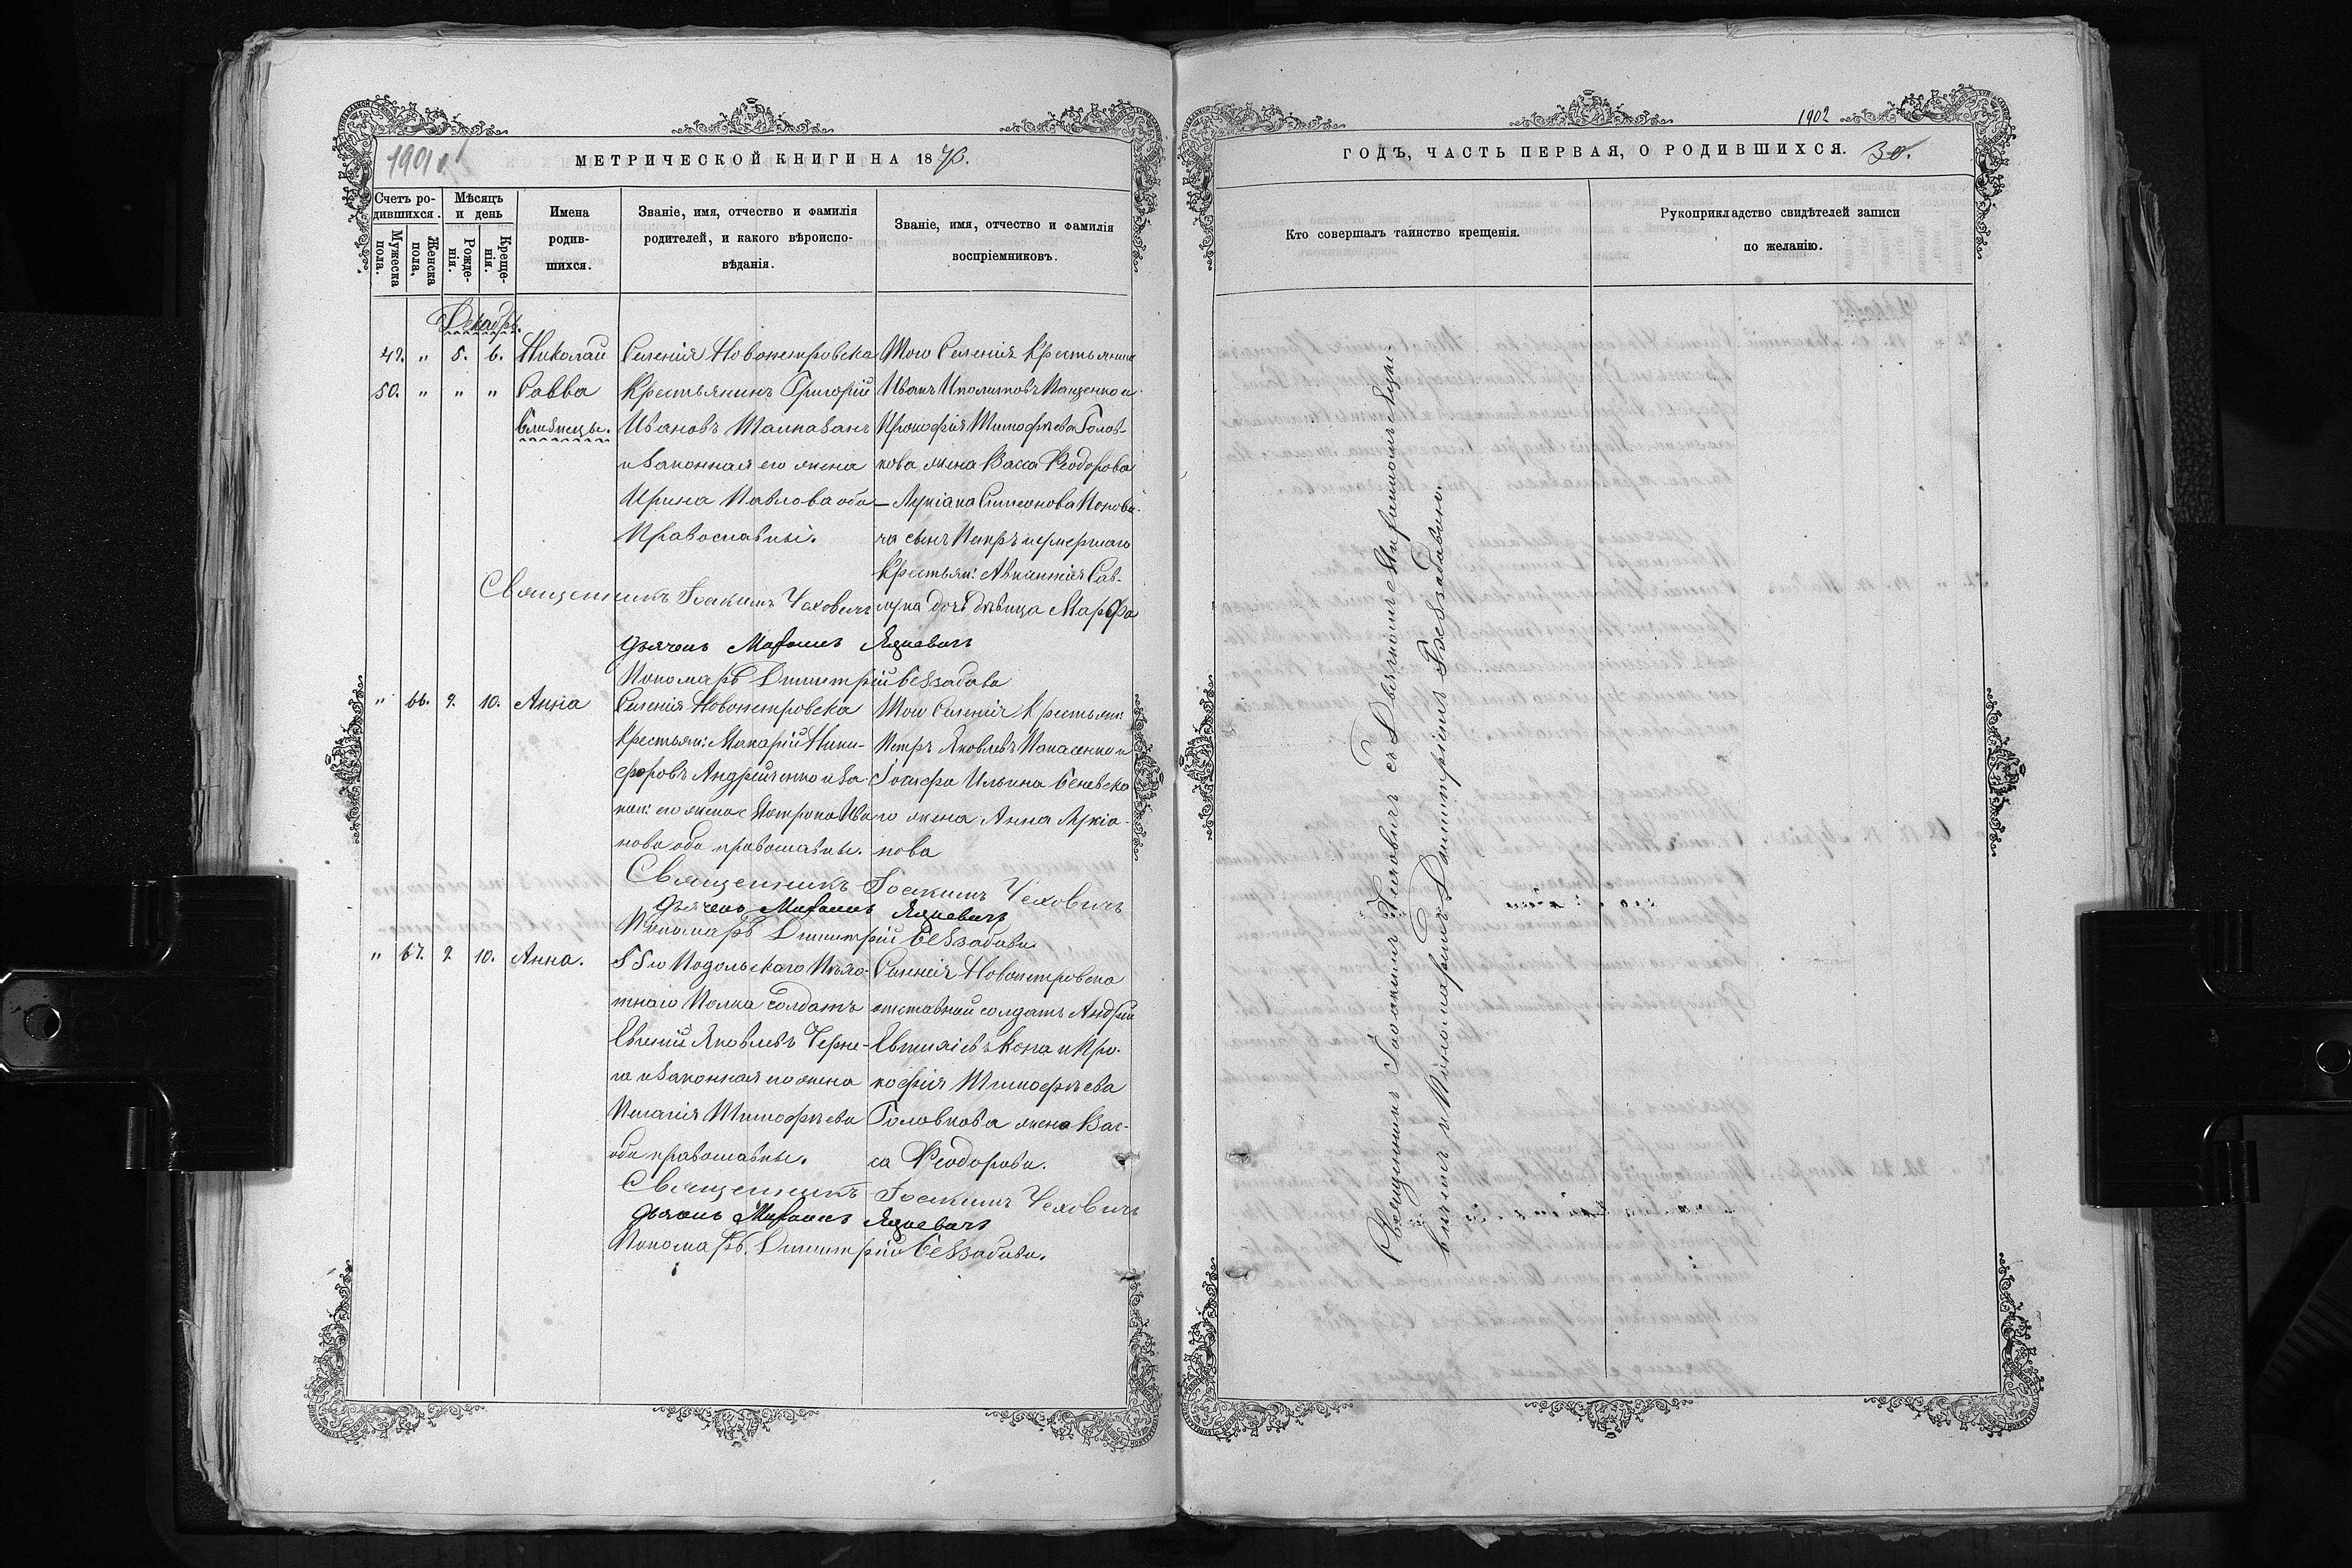 1901
МЕТРИЧЕСКОЙ КНИГИ НА 1870.
Счетъ родившихся.
Мужеска пола.
Женска пола.
Мѣсяцъ и день
Рожденія.
Крещенія.
Имена родившихся.
Званіе, имя, отчество и фамилія родителей, и какого вѣроисповѣданія.
Званіе, имя, отчество и фамилія воспріемниковъ.
Декабрь.
49. " 5. 6. Николай
50. " " " Савва
близнецы.
Селенія Новопетровска
Крестьянинъ Григорій
Ивановъ
и законная его жена
Ирина Павлова оба
Православныі.
Того Селенія Крестьянинъ
Иванъ
Прокофія Тимофѣева Голов-
кова жена Васса Ѳеодорова
— Лукіана Симеонова
сынъ Петръ и умершаго
Крестьян:
дочь дѣвица Марфа
Священникъ Іоакимъ Чеховичъ
Дьячекъ
Пономарь Димитрій Беззабава
" 66. 9. 10. Анна
Селенія Новопетровска
Крестьян: Макарій Ники-
форовъ Андрейченко и за-
кон: его жена Матрона Ива-
нова оба православные.
Того Селенія Крестьян:
Петръ Яковлевъ Панасенко и
Іосифа Ильина
го жена Анна Лукіа-
нова
Священникъ Іоакимъ Чеховичъ
Дьячекъ
Пономарь Димитрій Беззабава.
" 67. 9 10. Анна.
55го Подольскаго Пѣхо-
тнаго Полка солдатъ
Евгеній Яковлевъ Черне-
га и законная его жена
Пелагія Тимофѣева
оба православные.
Селенія Новопетровска
отставной солдатъ Андрей
и Про-
кофія Тимофѣева
Головкова жена Вас-
са Ѳеодорова.
Священникъ Іоакимъ Чеховичъ
Дьячекъ
Пономарь Димитрій Беззабава.
1902
ГОДЪ, ЧАСТЬ ПЕРВАЯ, О РОДИВШИХСЯ. 30.
Кто совершалъ таинство крещенія.
Рукоприкладство свидѣтелей записи по желанію.
Священникъ Іоакимъ Чеховичъ съ Дьячкомъ
вичемъ и Пономаремъ Димитріемъ Беззабавою.